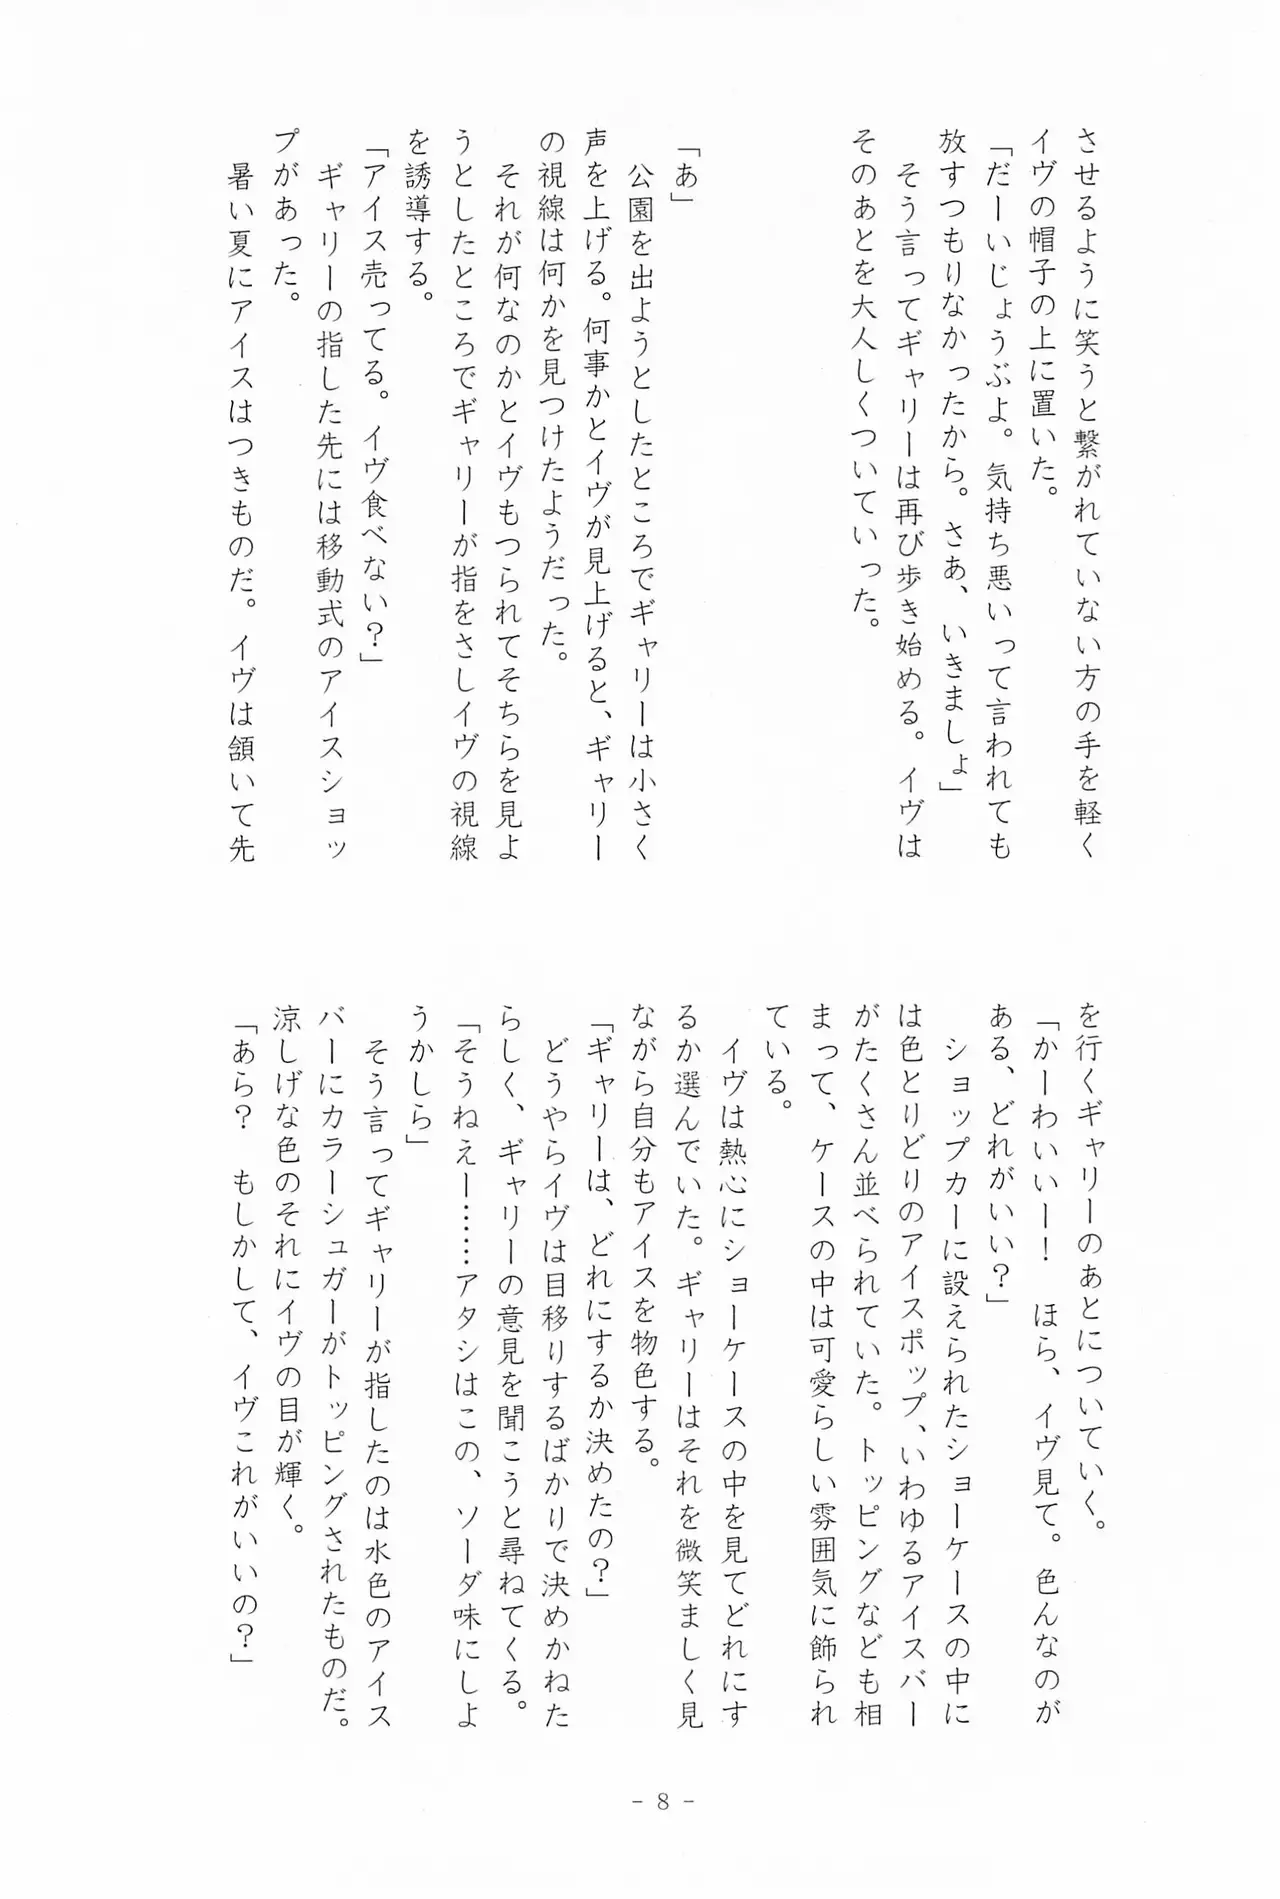 させるように笑うと繋がれていない方の手を軽く
イヴの帽子の上に置いた。
「だーいじょうぶよ。気持ち悪いって言われても
放すつもりなかったから。さあ、いきましょ」
　そう言ってギャリーは再び歩き始める。イヴは
そのあとを大人しくついていった。
「あ」
　公園を出ようとしたところでギャリーは小さく
声を上げる。何事かとイヴが見上げると、ギャリー
の視線は何かを見つけたようだった。
　それが何なのかとイヴもつられてそちらを見よ
うとしたところでギャリーが指をさしイヴの視線
を誘導する。
「アイス売ってる。イヴ食べない？」
　ギャリーの指した先には移動式のアイスショッ
プがあった。
　暑い夏にアイスはつきものだ。イヴは頷いて先
を行くギャリーのあとについていく。
「かーわいいー！　ほら、イヴ見て。色んなのが
ある、どれがいい？」
　ショップカーに設えられたショーケースの中に
は色とりどりのアイスポップ、いわゆるアイスバー
がたくさん並べられていた。トッピングなども相
まって、ケースの中は可愛らしい雰囲気に飾られ
ている。
　イヴは熱心にショーケースの中を見てどれにす
るか選んでいた。ギャリーはそれを微笑ましく見
ながら自分もアイスを物色する。
「ギャリーは、どれにするか決めたの？」
　どうやらイヴは目移りするばかりで決めかねた
らしく、ギャリーの意見を聞こうと尋ねてくる。
「そうねえー……アタシはこの、ソーダ味にしよ
うかしら」
　そう言ってギャリーが指したのは水色のアイス
バーにカラーシュガーがトッピングされたものだ。
涼しげな色のそれにイヴの目が輝く。
「あら？　もしかして、イヴこれがいいの？」
- 8 -